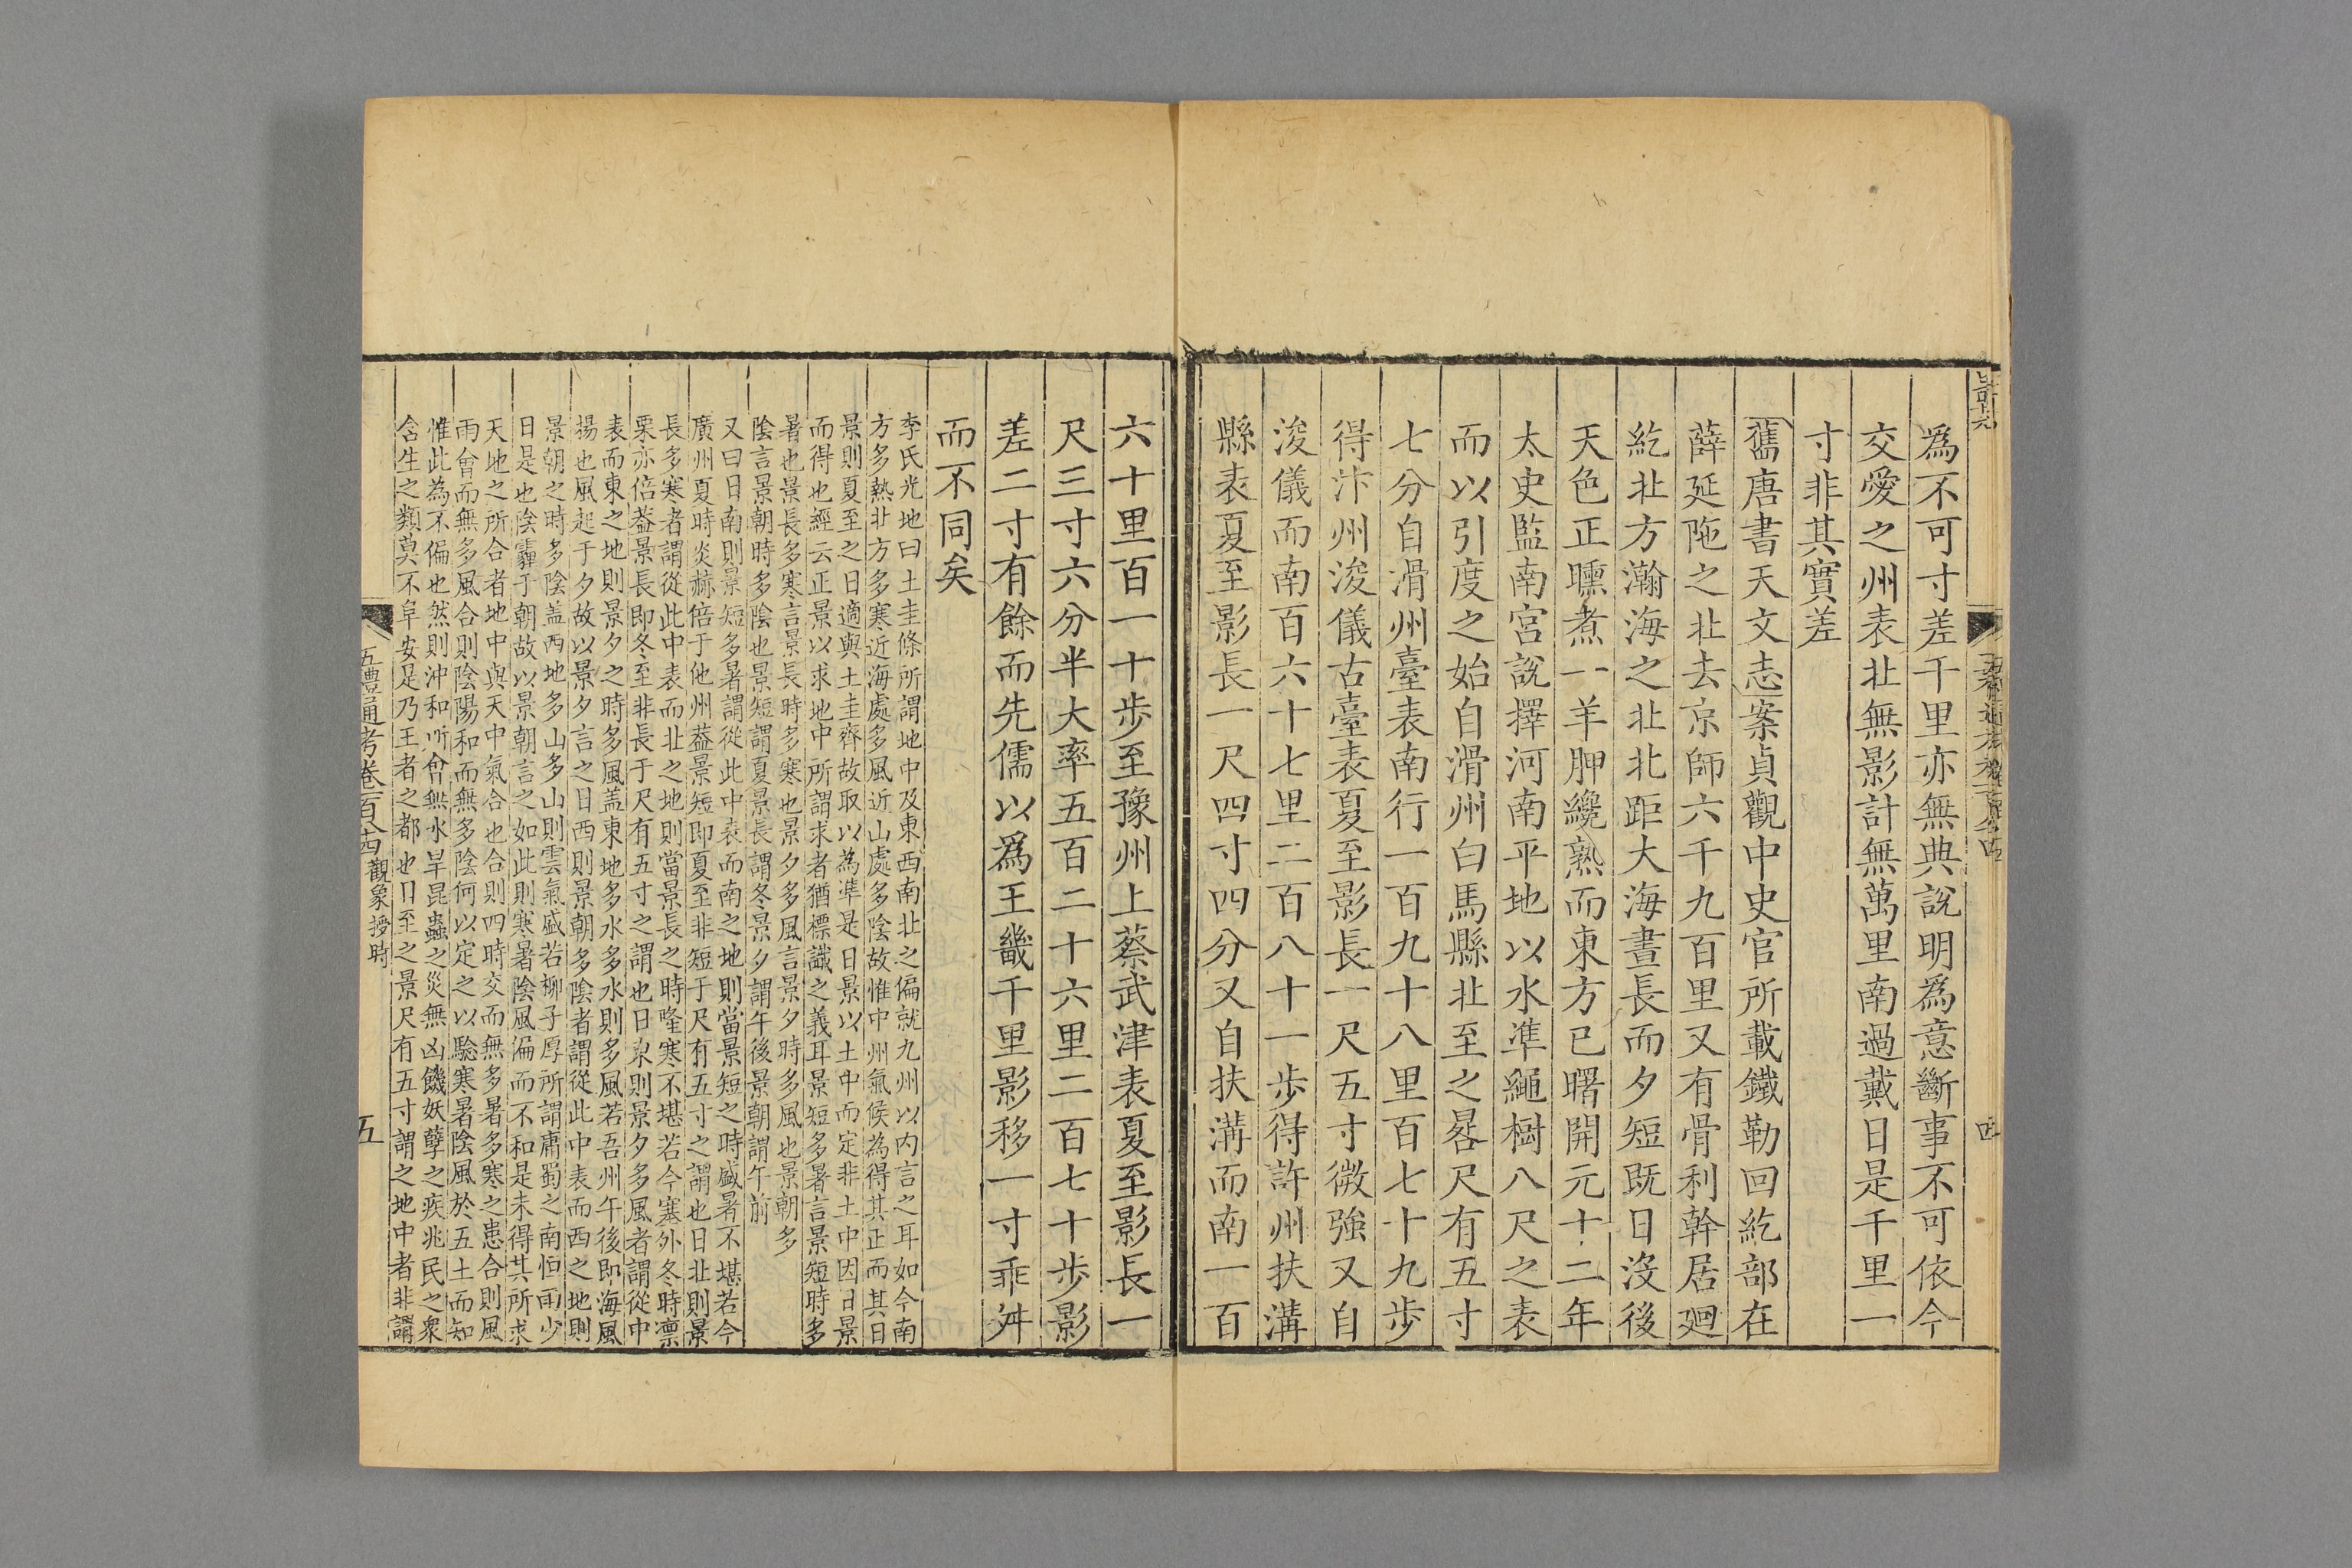 爲不可寸差千里亦無典說明爲意斷事不可依今
交愛之州表北無影計無萬里南過戴日是千里一
寸非其實差
舊唐書天文志案貞觀中史官所載鐵勒回紇部在
薛延陁之北去京師六千九百里又有骨利幹居廻
紇北方瀚海之北北距大海晝長而夕短旣日沒後
天色正曛煮一羊胛纔熟而東方已曙開元十二年
太史監南宮說擇河南平地以水準繩樹八尺之表
而以引度之始自滑州白馬縣北至之晷尺有五寸
七分自滑州臺表南行一百九十八里百七十九步
得汴州浚儀古臺表夏至影長一尺五寸微強又自
浚儀而南百六十七里二百八十一步得許州扶溝
縣表夏至影長一尺四寸四分又自扶溝而南一百
六十里百一十步至豫州上蔡武津表夏至影長一
尺三寸六分半大率五百二十六里二百七十步影
差二寸有餘而先儒以爲王畿千里影移一寸乖舛
而不同矣
李氏光地曰土圭條所謂地中及東西南北之偏就九州以內言之耳如今南
方多熱北方多寒近海處多風近山處多陰故惟中州氣候為得其正而其日
景則夏至之日適與土圭齊故取以為準是日景以土中而定非土中因日景
而得也經云正景以求地中所謂求者猶標識之義耳景短多暑言景短時多
暑也景長多寒言景長時多寒也景夕多風言景夕時多風也景朝多
陰言景朝時多陰也景短謂夏景長謂冬景夕謂午後景朝謂午前
又曰日南則景短多暑謂從此中表而南之地則當景短之時盛暑不堪若今
廣州夏時炎赫倍于他州葢景短即夏至非短于尺有五寸之謂也日北則景
長多寒者謂從此中表而北之地則當景長之時隆寒不堪若今塞外冬時凛
栗亦倍葢景長即冬至非長于尺有五寸之謂也日東則景夕多風者謂從中
表而東之地則景夕之時多風盖東地多水多水則多風若吾州午後即海風
揚也風起于夕故以景夕言之日西則景朝多陰者謂從此中表而西之地則
景朝之時多陰盖西地多山多山則雲氣盛若柳子厚所謂庸蜀之南恒雨少
日是也陰霾于朝故以景朝言之如此則寒暑陰風偏而不和是未得其所求
天地之所合者地中與天中氣合也合則四時交而無多暑多寒之患合則風
雨會而無多風合則陰陽和而無多陰何以定之以騐寒暑陰風於五土而知
惟此為不偏也然則沖和所會無水旱昆蟲之災無凶饑妖孽之疾兆民之衆
含生之類莫不阜安是乃王者之都也日至之景尺有五寸謂之地中者非謂
五禮通考卷一百八十四 觀象授時
五